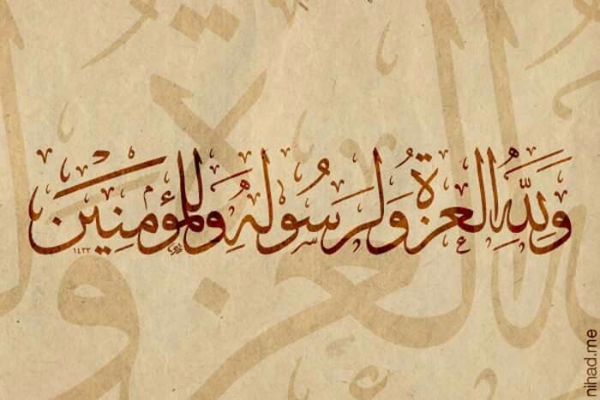 وَلِلَّهِ الْعِزَّةُ وَلِرَسُولِهِ وَلِلْمُؤْمِنِينَ
١٤٣٢
nihad.me